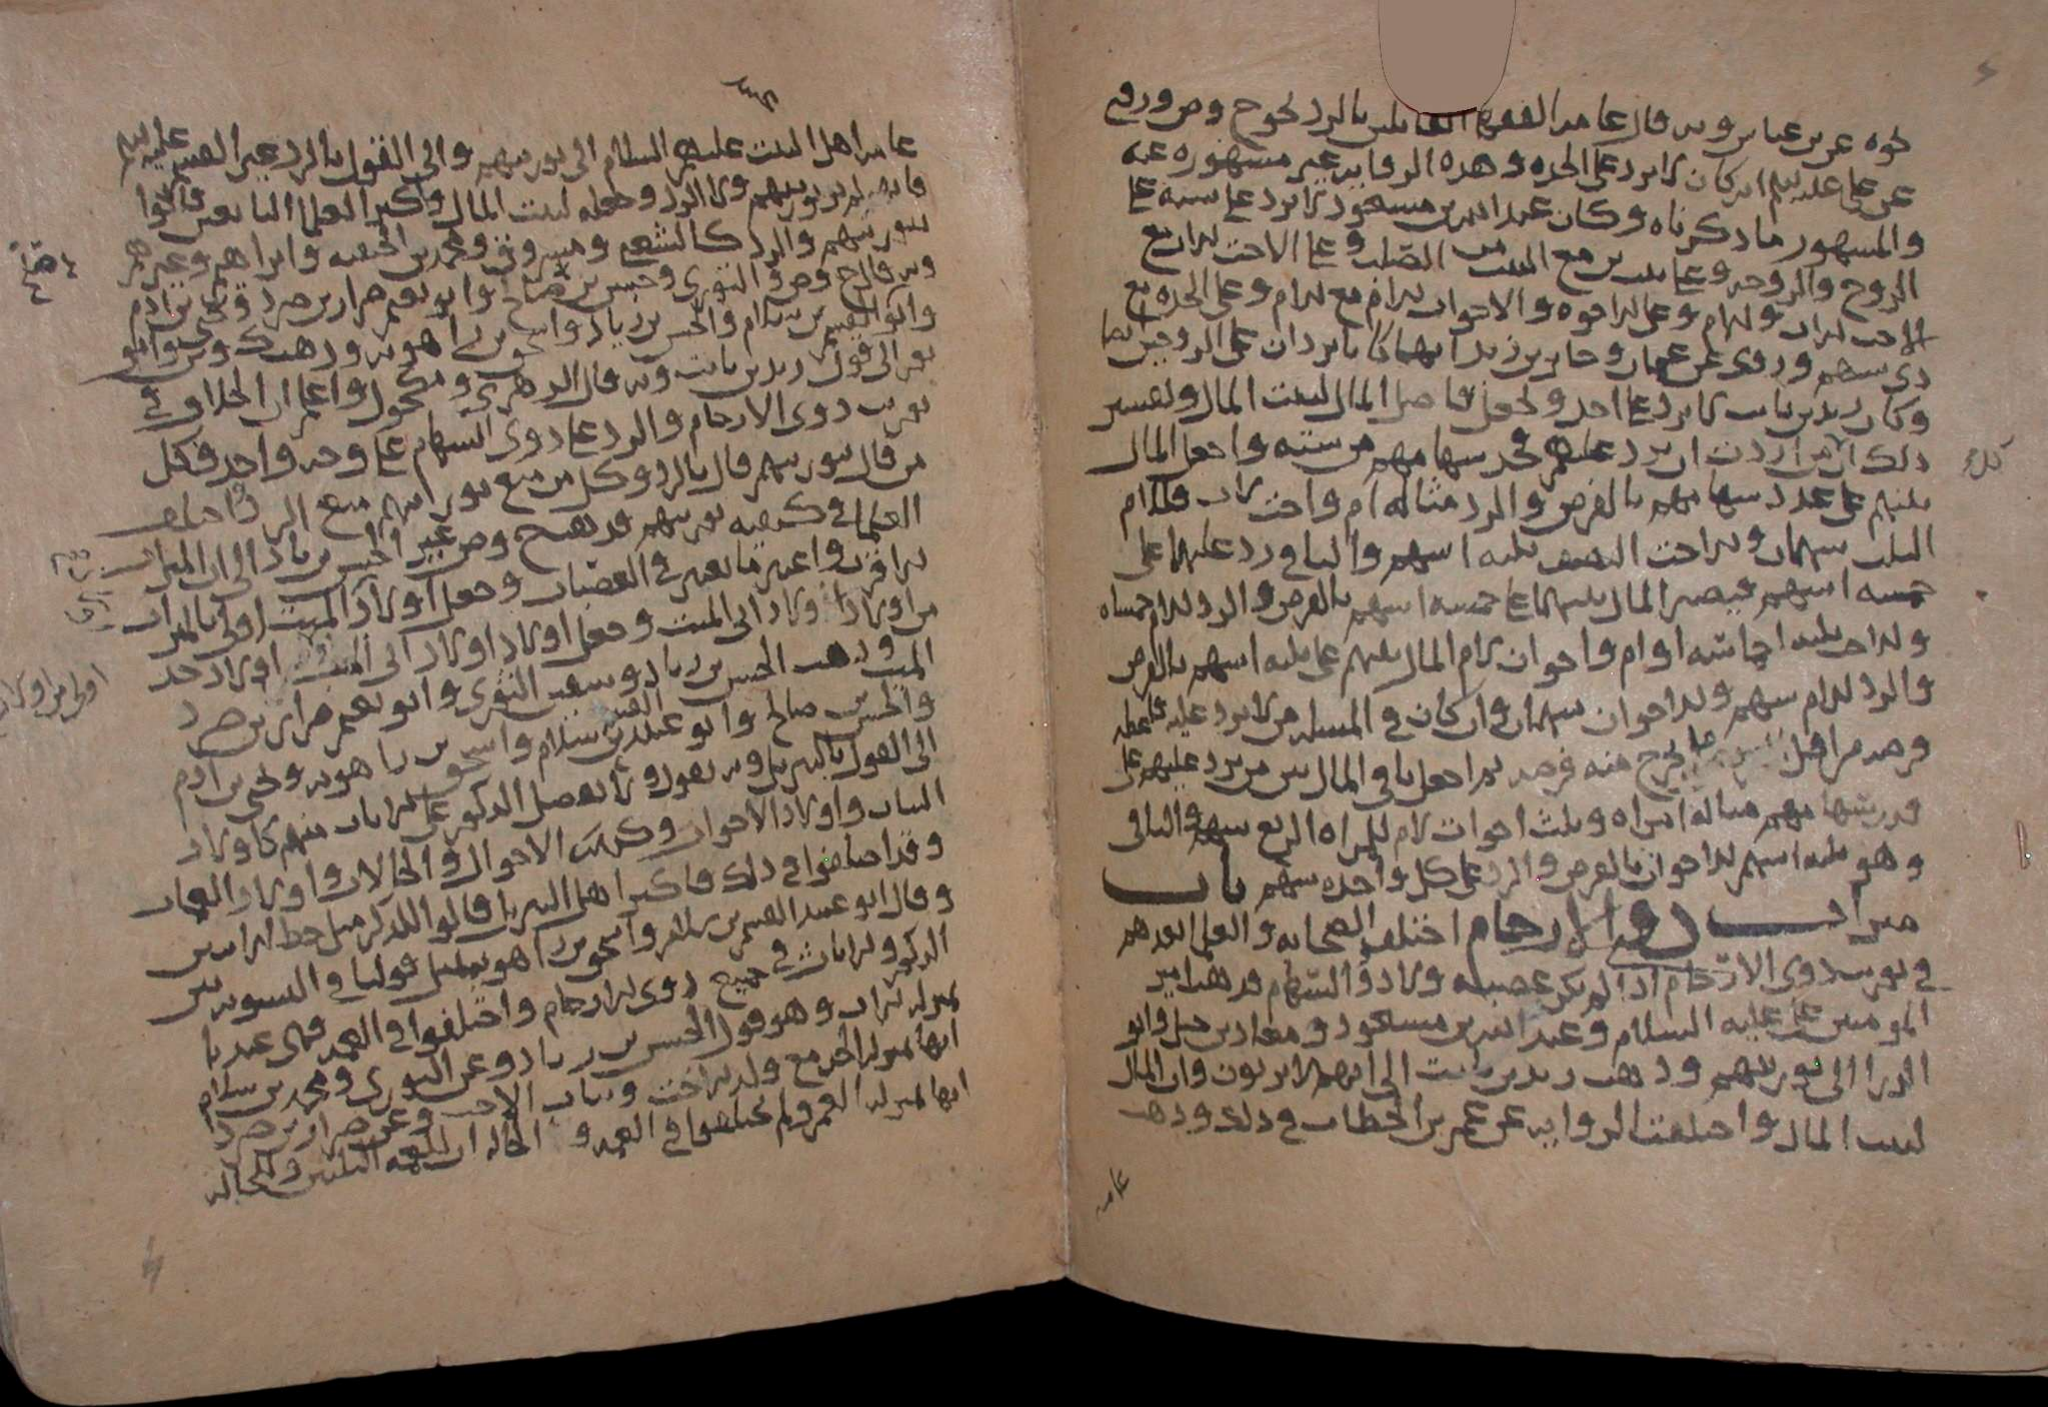 نحوه عن بن عباس وبه قال عامة الفقهاء القائلين بالرد نحو ح وص وروي
عن علي عليلم انه كان لا يرد على الجده وهذه الروايه غير مشهوره عنه
والمشهور ما ذكرناه وكان عبد الله بن مسعود لا يرد على سته على
الزوج والزوجه وعلى بنت بن مع البنت من الصلب وعلى الاخت لاب مع
الاخت لاب ولام وعلى الاخوه والاخوات لام مع لام وعلى الجده مع
ذي سهم وروي عن عثمان وجابر بن زيد انهما كانا يردان على الزوجين
وكان زيد بن ثابت لا يرد على احد ويجعل فاضل المال لبيت المال وتفسير
ذلك ان من اردت ان ترد عليهم فخذ سهامهم من سته واجعل المال
بينهم على عدد سهامهم بالفرض والرد مثاله ام واخت لاب فللام
الثلث سهمان وللاخت النصف ثلثه اسهم والباقي رد عليهما على
خمسه اسهم فيصير المال بينهما على خمسه اسهم بالفرض والرد للام خمساه
وللاخت ثلثه اخماسه او ام واخوان لام المال بينهم على ثلثه اسهم بالفرض
والرد للام سهم وللاخوان سهمان وان كان في المسله من لا يرد عليه فاعطه
فرضه من اقل ما يخرج منه فرضه ثم اجعل باقي المال بين من يرد عليهم على
قدر سهامهم مثاله امراه وثلث اخوات لام للمراه الربع سهم والباقي
وهو ثلثه اسهم للاخوات بالفرض والرد على كل واحده سهم باب
ميراث ذوي الارحام اختلف الصحابه والعلما بعدهم
في توريث ذوي الارحام اذا لم يكن عصبه ولا ذو السهام فذهب امير
المومنين علي عليه السلام وعبد الله بن مسعود ومعاذ بن جبل وابو
الدردا الى توريثهم وذهب زيد بن ثابت الى انهم لا يرثون وان المال
لبيت المال واختلفت الروايه عن عمر بن الخطاب في ذلك وذهب
عامه
عامه اهل البيت عليهم السلام الى توريثهم والى القول بالرد غير القسم عليلم
فانه لم يورثهم ولا الرد وجعله لبيت المال واكثر العلما التابعين قالوا
بتوريثهم والرد كالشعبي ومسروق ومحمد بن الحنفيه وابراهيم وغيرهم
وبه قال ح وص والثوري وحسن بن صالح وابو نعيم ضرار بن صرد ويحيى بن ادم
وابو القسم بن سلام والحسن بن زياد واسحق بن راهويه وذهب ك وش وابو
ثور الى قول زيد بن ثابت وبه قال الزهري ومكحول واعلم ان الخلاف في
توريث ذوي الارحام والرد على ذوي السهام على وجه واحد فكل
من قال بتوريثهم قال بالرد وكل من منع توريثهم منع الرد واختلف
العلما في كيفيه توريثهم فذهب ح وص غير الحسن بن زياد الى ان الميراث
للاقرب واعتبر ما يعتبر في العصبات وجعل اولاد الميت اولى بالميراث
من اولاد اولاد ابي الميت وجعل اولاد اولاد ابي الميت اولاد جد
الميت وذهب الحسن بن زياد وسفين الثوري وابو نعيم ضرار بن صرد
والحسن بن صالح وابو عبيد القسم بن سلام واسحق بن راهويه ويحيى بن ادم
الى القول بالتنزيل وبه نقول ولا نفضل الذكور على الاناث منهم كاولاد
البنات واولاد الاخوات وكذلك الاخوال والخالات واولاد العمات
وقد اختلفوا في ذلك فاكثر اهل التنزيل قالوا للذكر مثل حظ الانثيين
وقال ابو عبيد القسم بن سلام واسحق بن راهويه بمثل قولنا في التسويه بين
الذكور والاناث في جميع ذوي الارحام واختلفوا في العمه فهي عندنا
بمنزله الاب وهو قول الحسن بن زياد وعن الثوري ومحمد بن سلام
انها بمنزله الجد مع ولد الاخت وبنات الاخ وعن ضرار بن صرد
انها بمنزله العم ولم يختلفوا في العمه والخاله ان للعمه الثلثين وللخاله